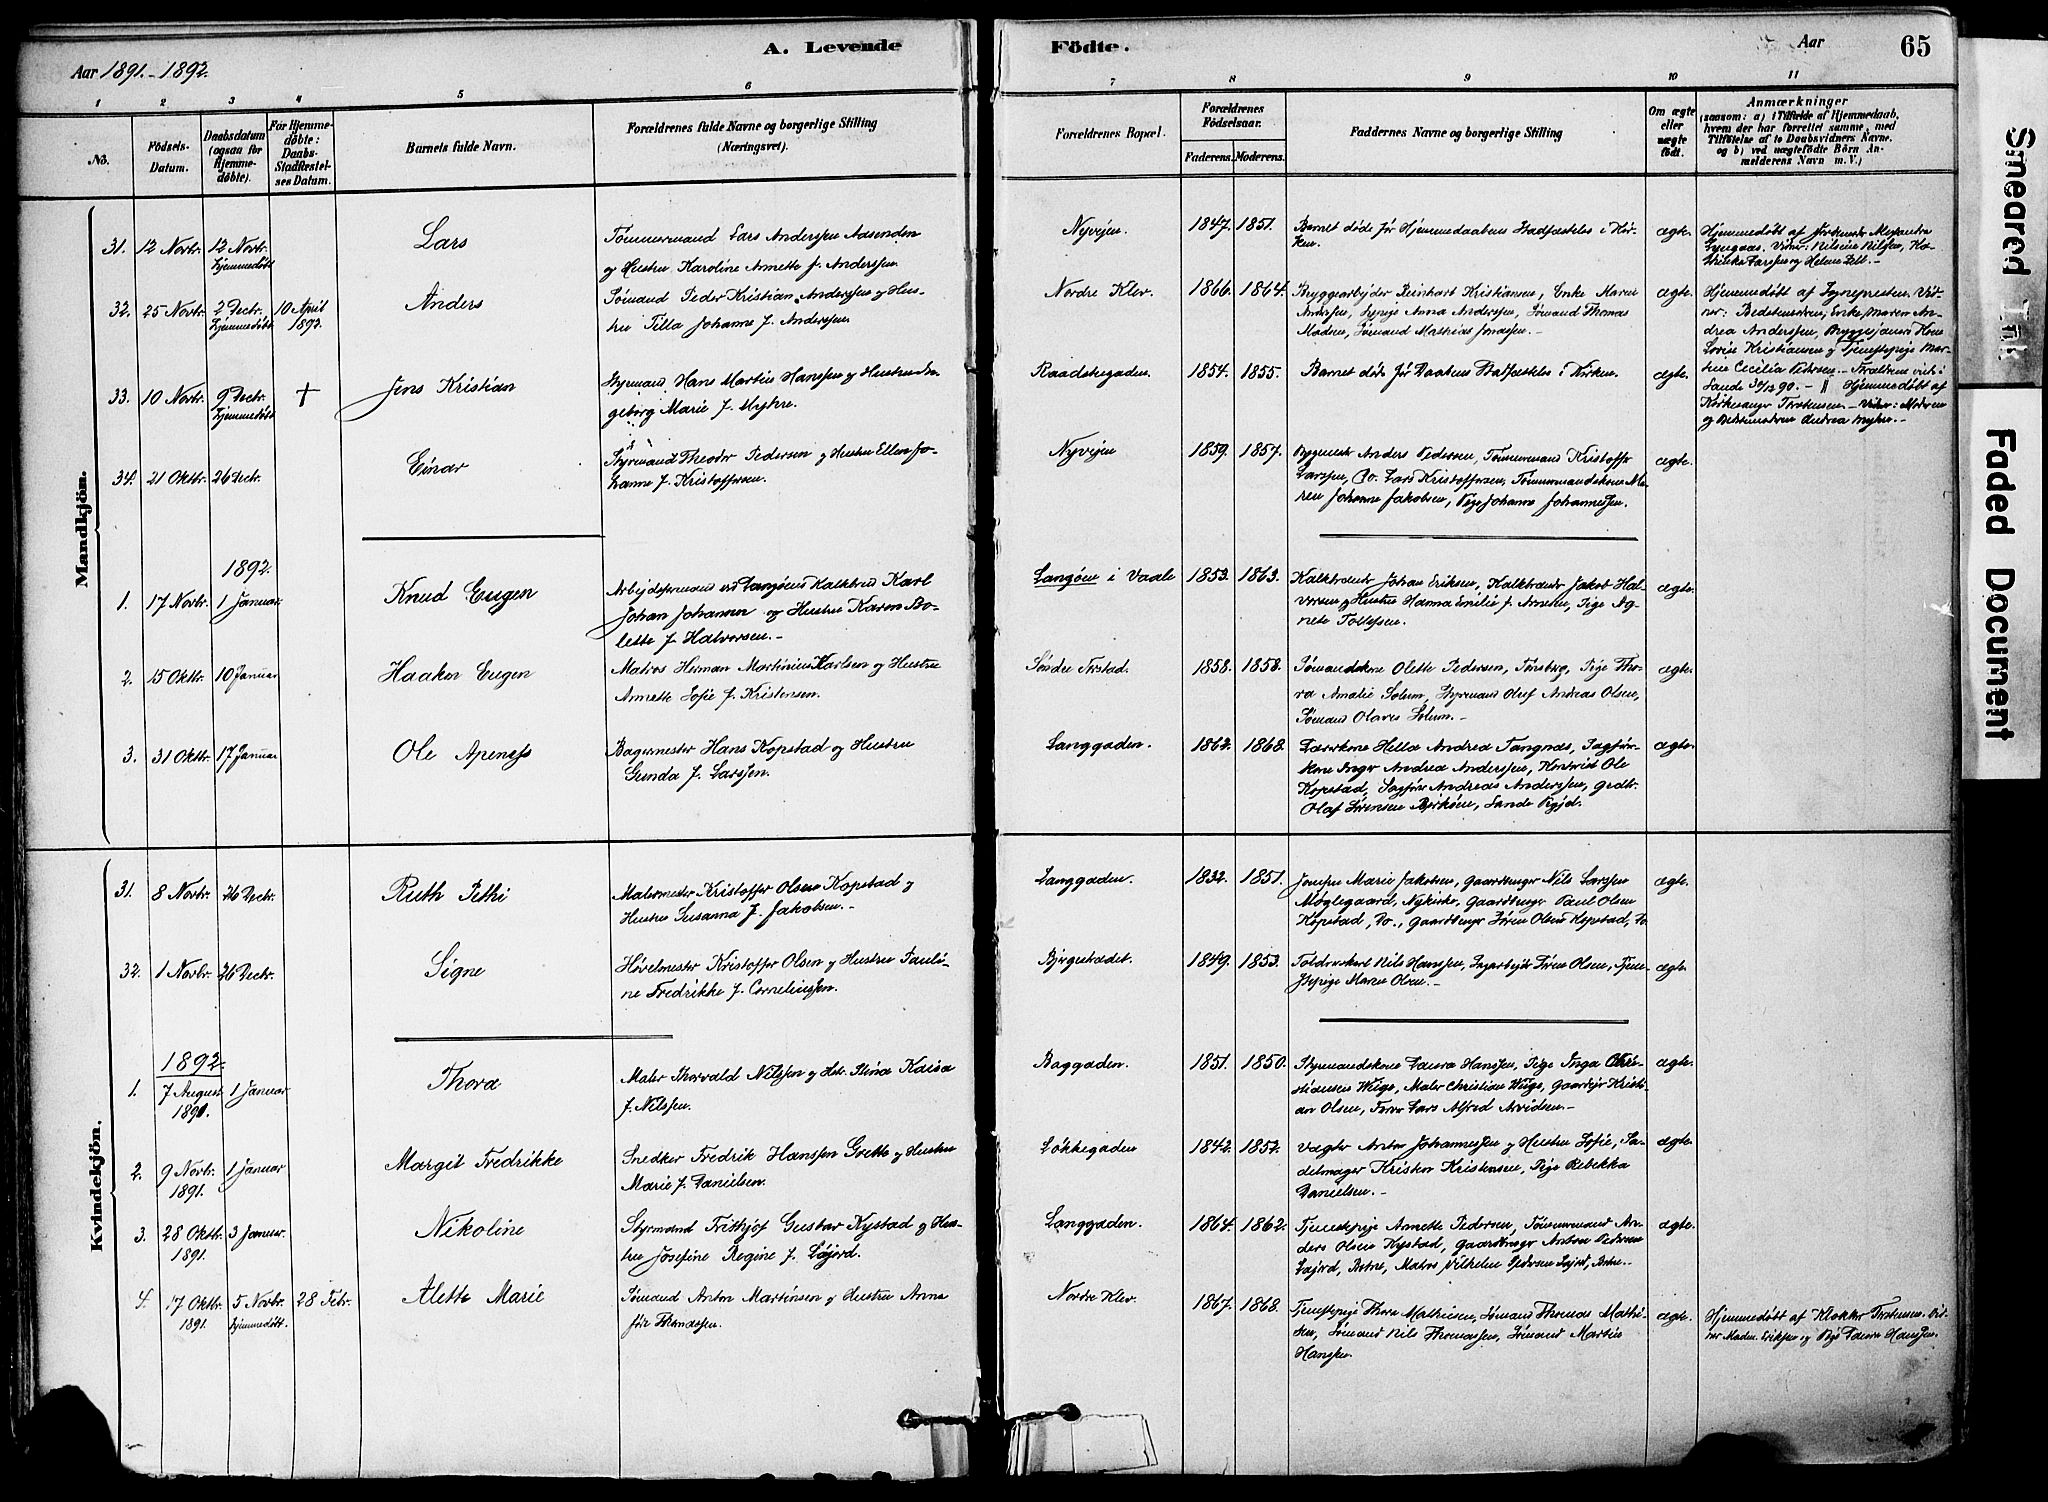 A. Levende
Födte.
Aar 1891.-1892.
Aar
65
1 2 3 4 5 6 7 8 9 10 11
No.
Födsels-
Datum.
Daabsdatum
(ogsaa for
Hjemme-
døbte).
For Hjemme-
døbte:
Daabs-
Stadfæstel-
ses Datum.
Barnets fulde Navn.
Forældrenes fulde Navne og borgerlige Stilling
(Næringsvei).
Forældrenes Bopæl.
Forældrenes
Fødselsaar.
Faderens. Moderens.
Faddernes Navne og borgerlige Stilling
Om ægte
eller
uægte
født.
Anmærkninger
(saasom: a) i Tilfælde af Hjemmedaab,
hvem der har forrettet samme, med
Tilføielse af to Daabsvidners Navne,
og b) ved uægtefödte Börn An-
melderens Navn m. V.)
Mandkjön.
31. 12 Novbr. 12 Novbr.
Hjemmedøbt
Lars
Tømmermand Lars Anderssen Aasenden
og Hustru Karoline Annette f. Anderssen.
Nyvejen 1847. 1851.
Barnet døde før Hjemmedaabens Stadfæstelse i Kir-
ken.
ægte.
Hjemmedøbt af Jordemoder
Vidner: Nilsine Nilsen,
Larssen og Helene
32. 25 Novbr. 2 Decbr. 10 April
Hjemmedøbt 1892.
Anders
Sømand Peder Kristian Anderssen og Hus-
tru Tilla Johanne f. Anderssen.
Nordre Klev. 1866. 1864.
Bryggearbejder Reinhart Kristiansen, Enke Maren
Anderssen, Pige Anna Anderssen, Sømand Thomas
Madsen, Sømand Mathias Jonassen.-
ægte.
Hjemmedøbt af Sognepresten. Vid-
ner: Bedstemoderen, Enke Maren An-
drea Anderssen, Bryggesjauer
Lovise Kristiansen og Tjenestepige Mar-
thine Cecilia Pedersen.- Forældrene viede i
Sande 30/12 90.-
33. 10 Novbr. 9 Decbr. †
Hjemmedøbt
Jens Kristian
Styrmand Hans Martin Hanssen og Hustru In-
geborg Marie f. Myhre.
Raadhusgaden. 1854. 1855.
Barnet døde før Daabens Stadfæstelse i Kirken.
ægte.
Hjemmedøbt af
Kirkesanger Thorstensen.- Vidner: Moderen
og Bedstemoderen Andrea Myhre.-
34. 21 Oktbr. 26 Decbr.
Einar
Styrmand Theodor Pedersen og Hustru Ellen Jo-
hanne f. Kristoffersen.
Nyvejen 1859. 1857.
Bygmester Anders Pedersen, Tømmermand Kristoffer
Larssen, Do. Lars Kristoffersen, Tømmermandskone Ma-
ren Johanne Jakobsen, Pige Johanne Johannessen.
ægte.
1892.
1. 17 Novbr. 1 Januar
Knud Eugen
Arbejdsformand ved Langøens Kalkbrud Karl
Johan Johansen og Hustru Karen Bo-
lette f. Halvorsen.-
Langøen i Vaale 1853. 1863.
Kalkbrænder Johan Eriksen, Kalkbrænder Jakob Hal-
vorsen og Hustru Hanna Emilie f. Arnesen, Pige Ag-
nete Tollefsen.
ægte.
2. 15 Oktbr. 10 Januar
Haakon Eugen
Matros Herman Martinius Karlsen og Hustru
Annette Sofie f. Kristensen.
Søndre 1858. 1858.
Sømandskone Olette Pedersen, Tønsberg, Pige Tho-
ra Amalie Solum, Styrmand Oluf Andreas Olsen,
Sømand Olaves Solum.-
ægte.
3. 31 Oktbr. 17 Januar
Ole Apeness
Bagermester Hans Kopstad og Hustru
Gunda f. Larssen.
Langgaden. 1862. 1868.
Lærerkone Hella Andrea Tangnæs, Sagfører-
kone Inger Andrea Anderssen, Ole
Kopstad, Sagfører Andreas Anderssen, Grdbr.
Olaf Sørensen Bjerkøen, Sande Pgjd.
ægte.
Kvindekjön.
31. 8 Novbr. 26 Decbr.
Ruth Pethi
Malermester Kristoffer Olsen Kopstad og
Hustru Susanna f. Jakobsen.-
Langgaden. 1832. 1851.
Jomfru Marie Jakobsen, Gaardbruger Nils Larssen
Møglegaard, Nykirke, Gaardbruger Paul Olsen
Kopstad, Do., Gaardbruger Søren Olsen Kopstad, Do
ægte.
32. 1 Novbr. 26 Decbr.
Signe
Høvelmester Kristoffer Olsen og Hustru Pauli-
ne Fredrikke f. Corneliussen.
Bjergetrædet. 1849. 1853.
Nils Hanssen, Søren Olsen, Tjene-
stepige Maren Olsen.-
ægte.
1892.
1. 7 August 1 Januar
1891.
Thora
Maler Thorvald Nilssen og Hst. Stina Kaisa
f. Nilssen.
Baggaden. 1851. 1850.
Styrmandskone Laura Hanssen, Pige Inga Chri-
stiansen Wiige, Maler Christian Wiige, Gaardbr. Kristi-
an Olsen, Lars Alfred Arvidsen.-
ægte.
2. 9 Novbr. 1 Januar
1891.
Margit Fredrikke
Snedker Fredrik Hanssen Grette og Hustru
Marie f. Danielsen.
Løkkegaden 1842. 1852.
Vægter Anton Johannessen og Hustru Sofie, Sa-
delmager Kristen Kristensen, Pige Rebekka
Danielsen.-
ægte.
3. 28 Oktbr. 3 Januar.
1891.
Nikoline
Styrmand Frithjof Gustav Kystad og Hus-
tru Josefine Regine f. Løjerd.
Langgaden. 1864. 1862.
Tjenestepige Annette Pedersen, Tømmermand An-
ders Olsen Kystad, Gaardbruger Anton Pedersen
Løjerd, Botne, Matros Vilhelm Pedersen Løjerd, Botne.-
ægte.
4. 17 Oktbr. 5 Novbr. 28 Febr.
1891. Hjemmedøbt.
Alette Marie
Sømand Anton Martinsen og Hustru Anne
født Thomassen.
Nordre Klev. 1867. 1868.
Tjenestepige Thora Mathisen, Sømand Thomas Mathi-
sen, Sømand Nils Thomassen, Sømand Martin
Hanssen.
ægte.
Hjemmedøbt af Klokker Thorstensen. Vid-
ner Madam Eriksen og Pige Laura Hanssen.
Smeared Ink
Faded Document